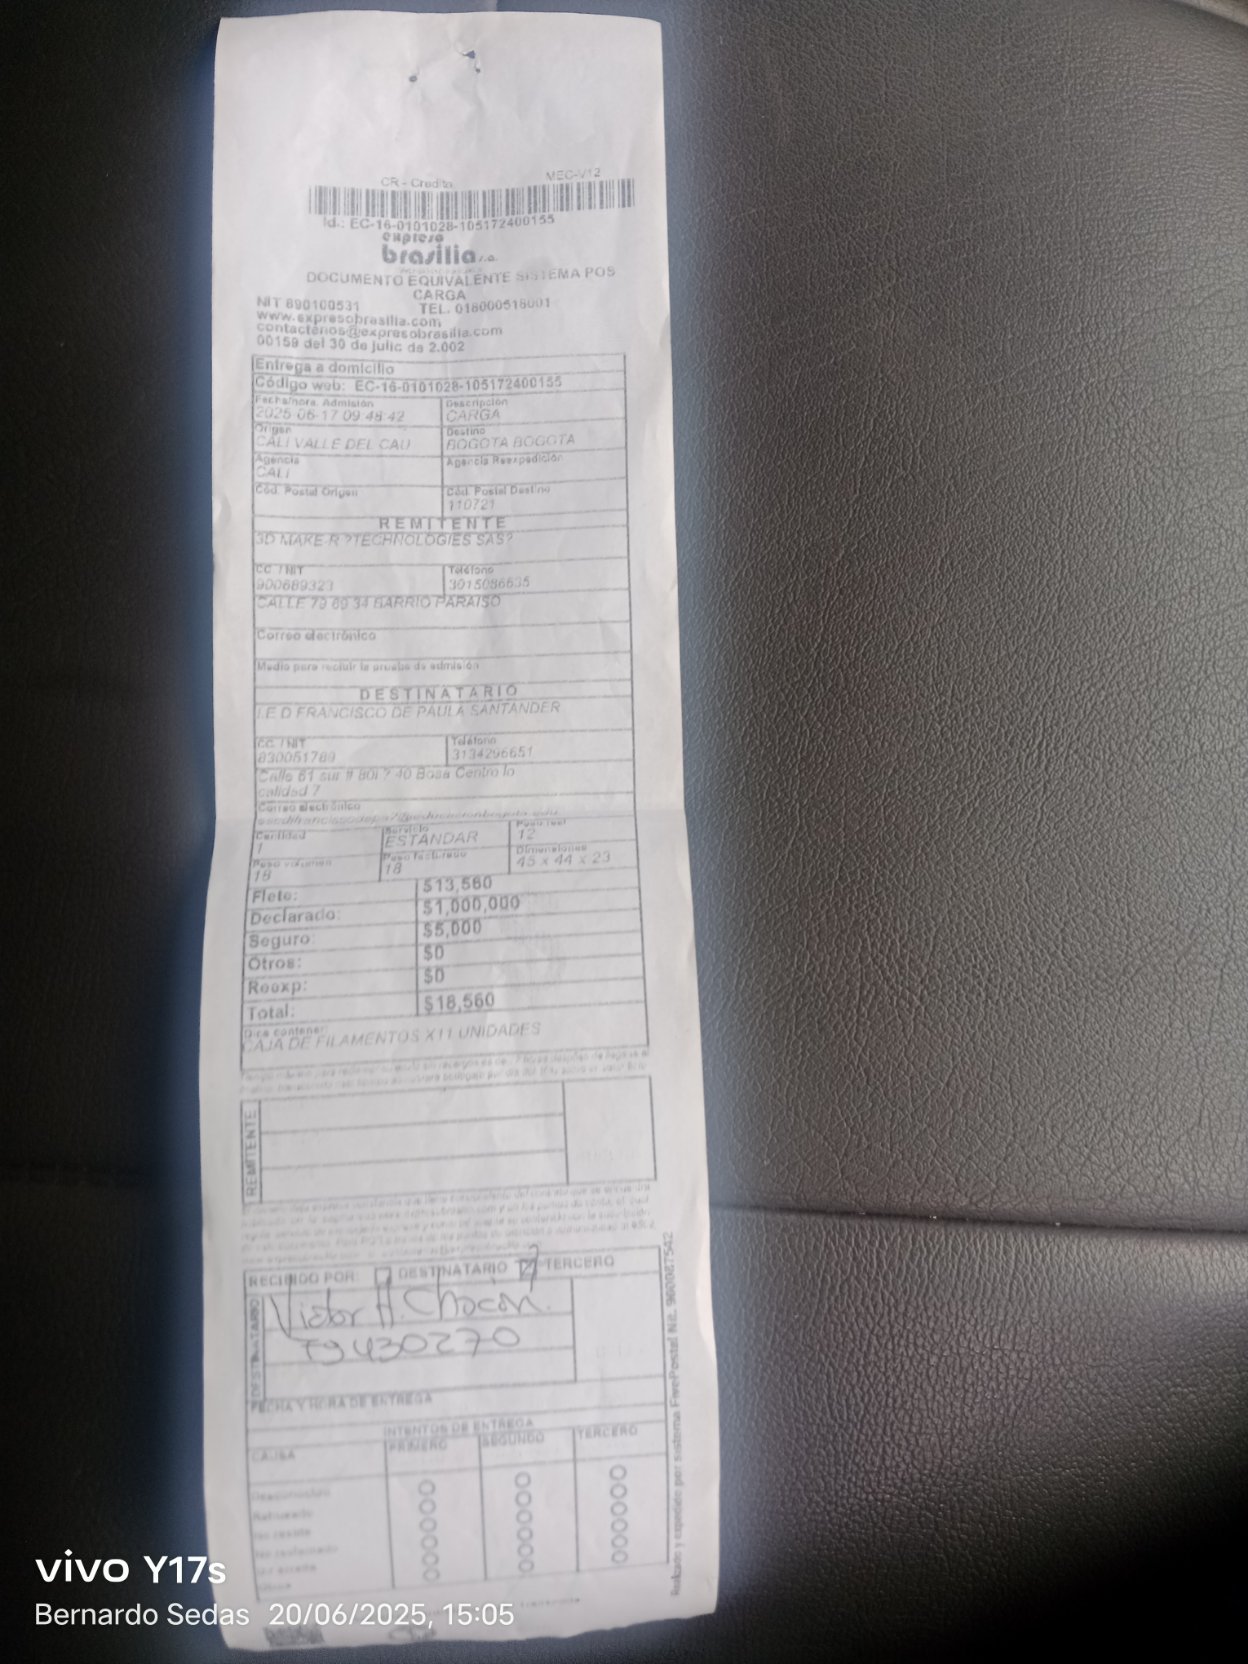 CR - Credito MEC-V12
Id.: EC-16-0101028-105172400155
expreso
brasilia s.a.
DOCUMENTO EQUIVALENTE SISTEMA POS
CARGA
NIT 890100531 TEL. 018000518001
www.expresobrasilia.com
contactenos@expresobrasilia.com
00159 del 30 de julio de 2.002
Entrega a domicilio
Código web: EC-16-0101028-105172400155
Fecha/hora. Admisión Descripción
2025-06-17 09:48:42 CARGA
Origen Destino
CALI VALLE DEL CAU BOGOTA BOGOTA
Agencia Agencia Reexpedición
CALI
Cód. Postal Origen Cód. Postal Destino
110721
REMITENTE
3D MAKE-R ?TECHNOLOGIES SAS?
CC. / NIT Teléfono
900689323 3015086635
CALLE 79 69 34 BARRIO PARAISO
Correo electrónico
Medio para recibir la prueba de admisión
DESTINATARIO
I.E D FRANCISCO DE PAULA SANTANDER
CC. / NIT Teléfono
830051789 3134296651
Calle 61 sur # 80I ? 40 Bosa Centro lo
calidad 7
Correo electrónico
Cantidad Servicio Peso real
1 ESTANDAR 12
Peso volumen Peso facturado Dimensiones
18 18 45 x 44 x 23
Flete: $13,560
Declarado: $1,000,000
Seguro: $5,000
Otros: $0
Reexp: $0
Total: $18,560
Dice contener:
CAJA DE FILAMENTOS X11 UNIDADES
REMITENTE
RECIBIDO POR: DESTINATARIO TERCERO
DESTINATARIO
Victor A. Chacon.
79430270
FECHA Y HORA DE ENTREGA
INTENTOS DE ENTREGA
CAUSA PRIMERO SEGUNDO TERCERO
Desconocido
Rehusado
No reside
No reclamado
Otros
Radicado y expedido por sistema FivePostal Nit. 9600087542
vivo Y17s
Bernardo Sedas 20/06/2025, 15:05